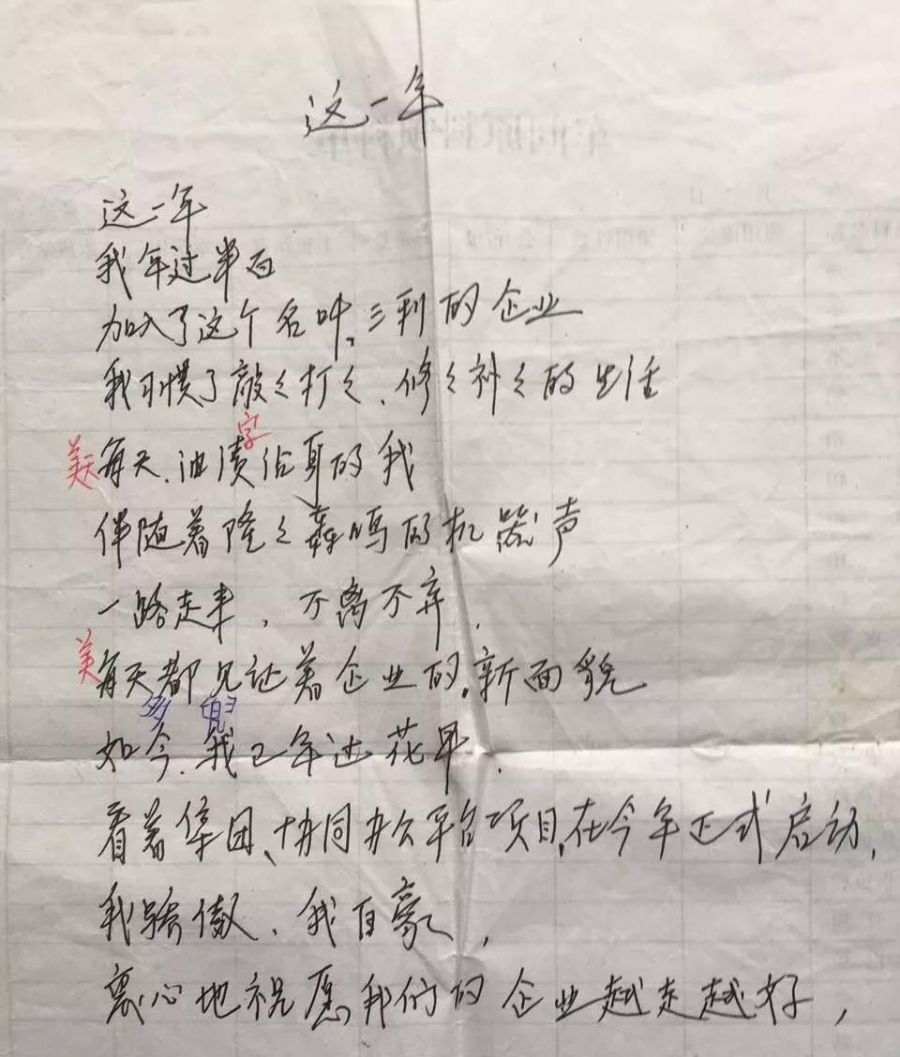 这一年
这一年
我年过半百
加入了这个名叫三利的企业
我习惯了敲々打々、修々补々的生活
字
美天
每天、油渍沾身的我
伴随着隆々轰鸣的机器声
一路走来，不离不弃，
美
每天都见证着企业的新面貌
多
如今、我已年达花甲，
看着集团、协同办公平台项目，在今年正式启动，
我骄傲、我自豪，
衷心地祝愿我们的企业越走越好，